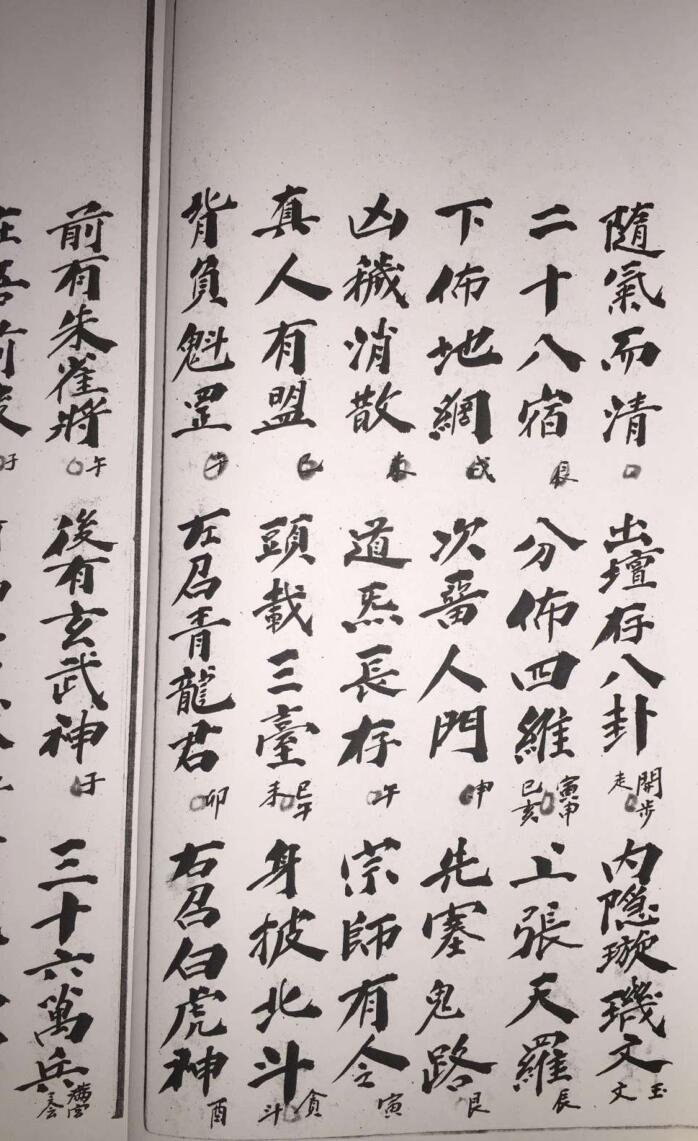 隨氣而清 出壇存八卦 開步走 內隐璇璣文 玉文
二十八宿 分佈四維 寅申巳亥 上張天羅 辰
下佈地網 戌 次畨人門 申 先塞鬼路 艮
凶穢消散 未 道炁長存 午 宗師有令 寅
真人有盟 巳 頭載三臺 巳午未 身披北斗 貪斗
背負魁罡 午 左召青龍君 卯 右召白虎神 酉
前有朱雀將 午 後有玄武神 子 三十六萬兵